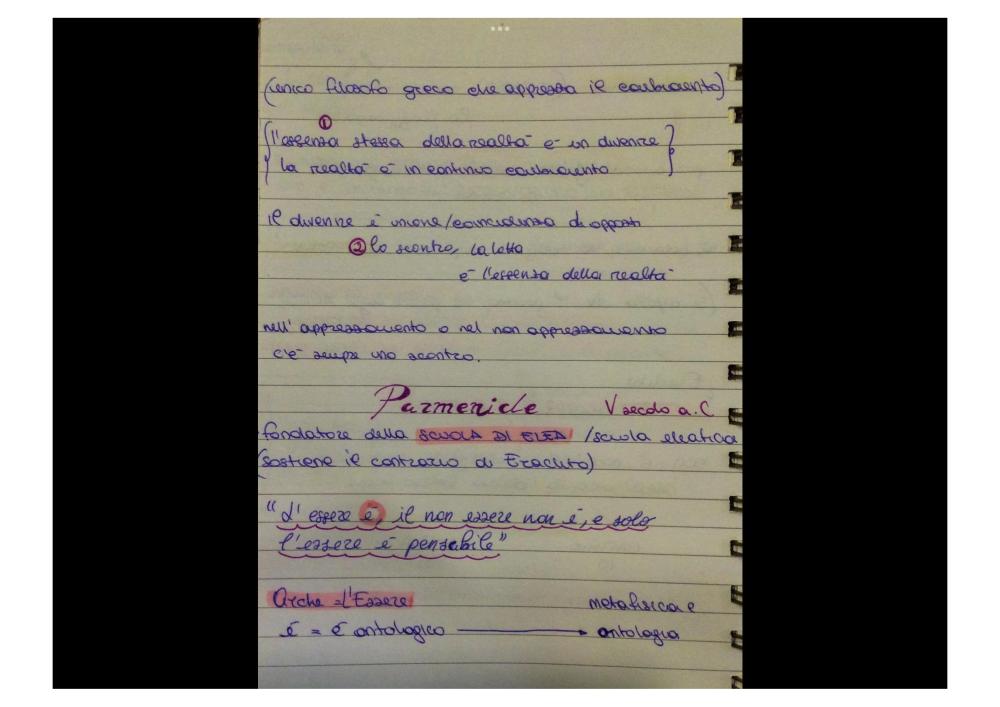 (unico filosofo greco che apprezza il cambiamento)
①
l'essenza stessa della realtà è un divenire
la realtà è in continuo cambiamento
il divenire è unione/coincidenza di opposti
② lo scontro, la lotta
è l'essenza della realtà
nell'apprezzamento o nel non apprezzamento
c'è sempre uno scontro.
Parmenide V secolo a.C
fondatore della SCUOLA DI ELEA /scuola eleatica
(sostiene il contrario di Eraclito)
"L'essere è, il non essere non è, e solo
l'essere è pensabile"
Arche = L'Essere metafisica e
è = è ontologico → ontologia